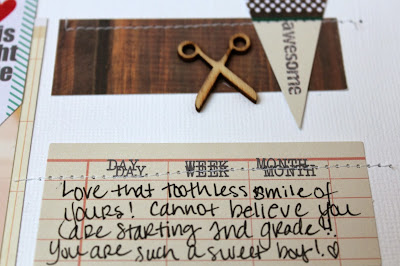 is
ght
ne
awesome
DAY WEEK MONTH
DAY WEEK MONTH
Love that toothless smile of
yours! Cannot believe you
are starting 2nd grade!!
You are such a sweet boy!♡